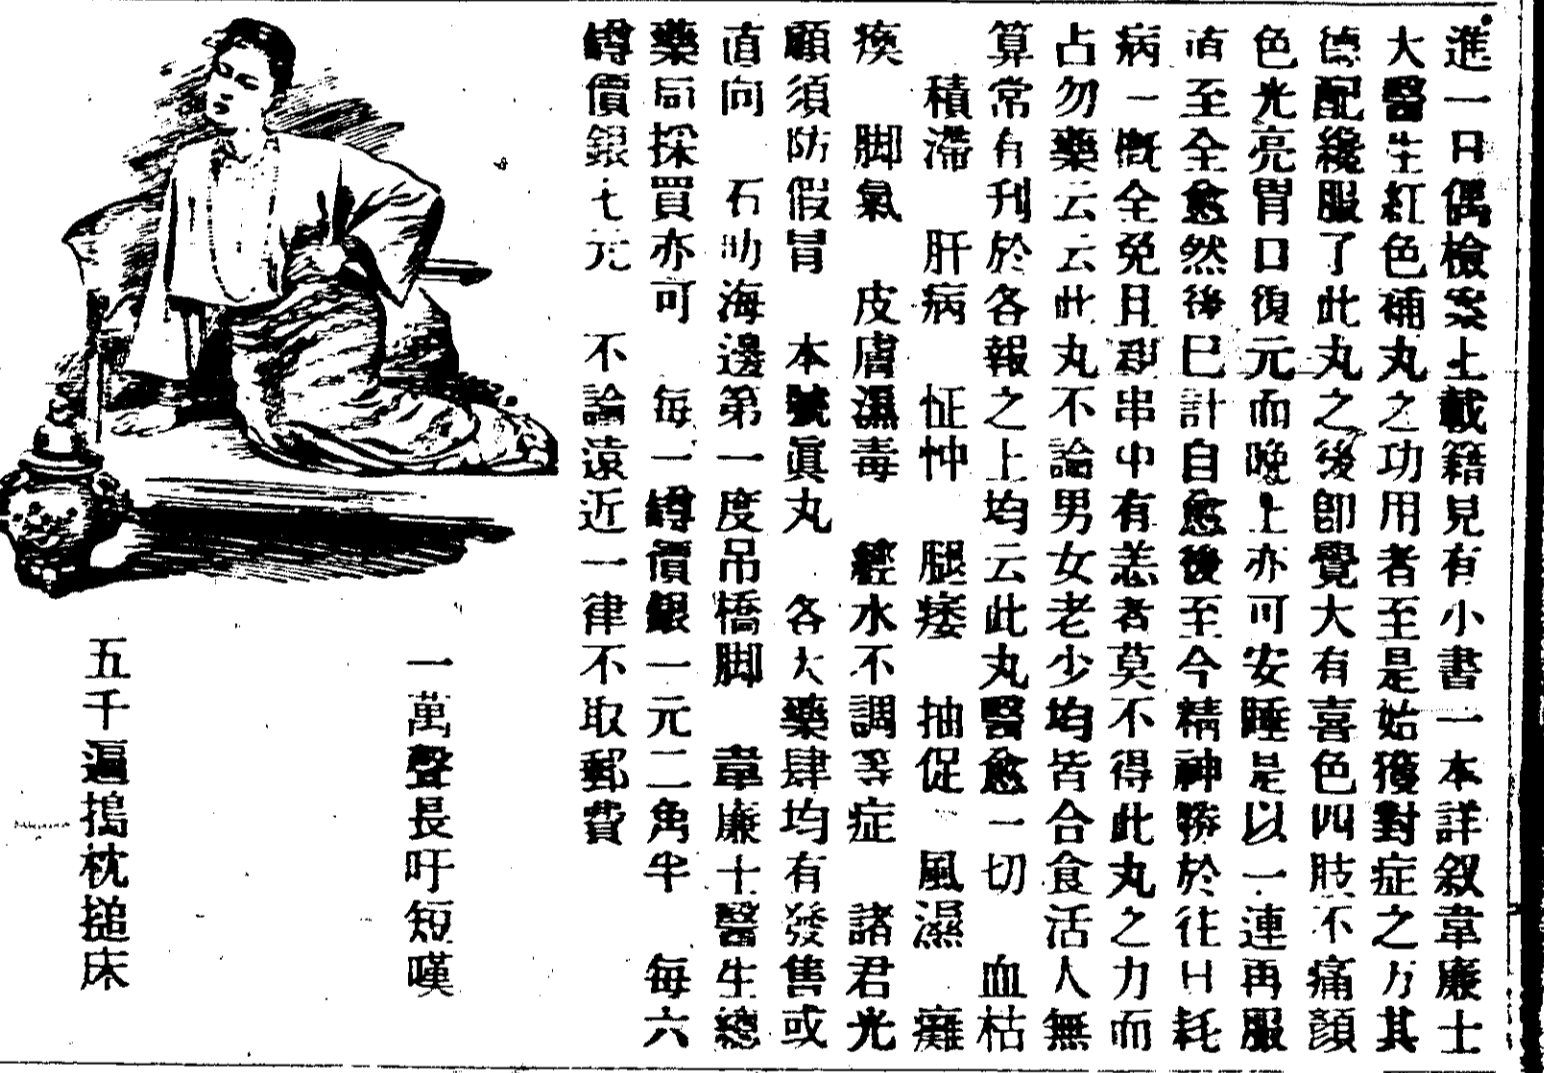 進一日偶檢案上載籍見有小書一本詳叙韋廉士
大醫生紅色補丸之功用者至是始獲對症之方其
德配纔服了此丸之後卽覺大有喜色四肢不痛顏
色光亮胃口復元而晚上亦可安睡是以一連再服
直至全愈然後巳計自愈後至今精神勝於往日耗
病一慨全免且親串中有恙者莫不得此丸之力而
占勿藥云云此丸不論男女老少均皆合食活人無
算常有刊於各報之上均云此丸醫愈一切 血枯
積滯 肝病 怔忡 腿痿 抽促 風濕 癱
瘓 脚氣 皮膚濕毒 經水不調等症 諸君光
顧須防假冒 本號眞丸 各大藥肆均有發售或
直向 石叻海邊第一度吊橋脚 韋廉士醫生總
藥局採買亦可 每一罇價銀一元二角半 每六
罇價銀七元 不論遠近一律不取郵費
一萬聲長吁短嘆
五千遍搗枕搥床